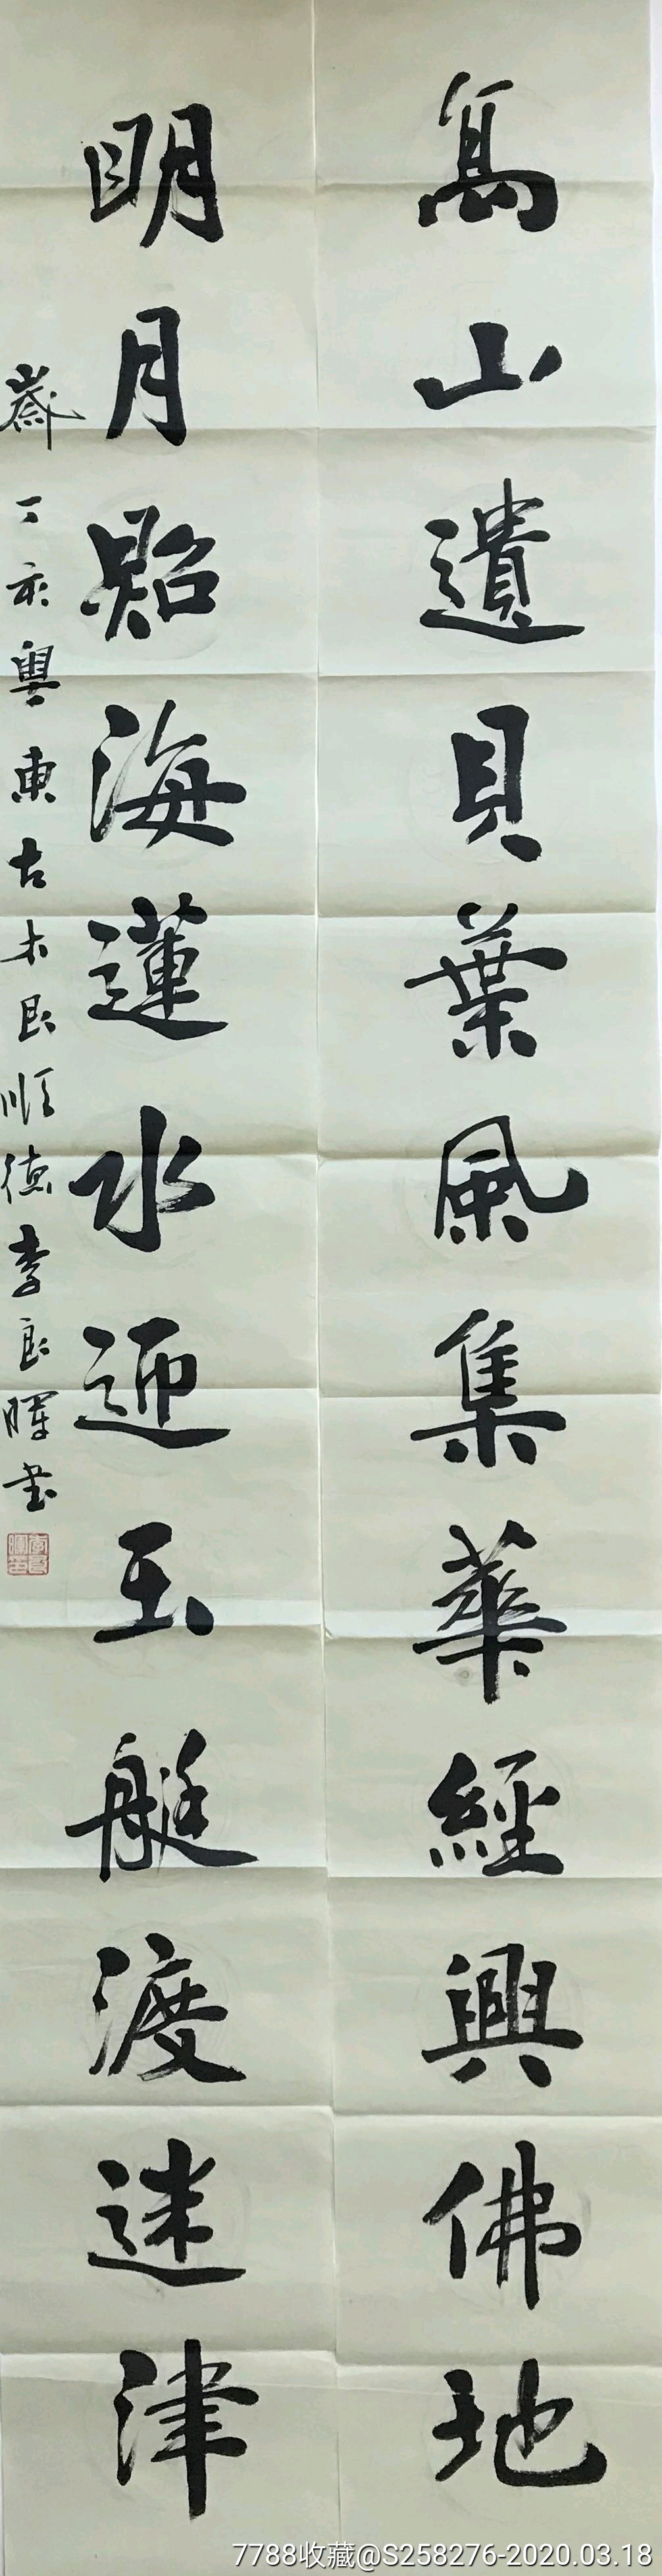 嵩山遺貝葉風集華經興佛地
明月照海蓮水迎玉艇渡迷津
歲丁亥粵東古木良順德李良暉書
7788收藏@S258276-2020.03.18